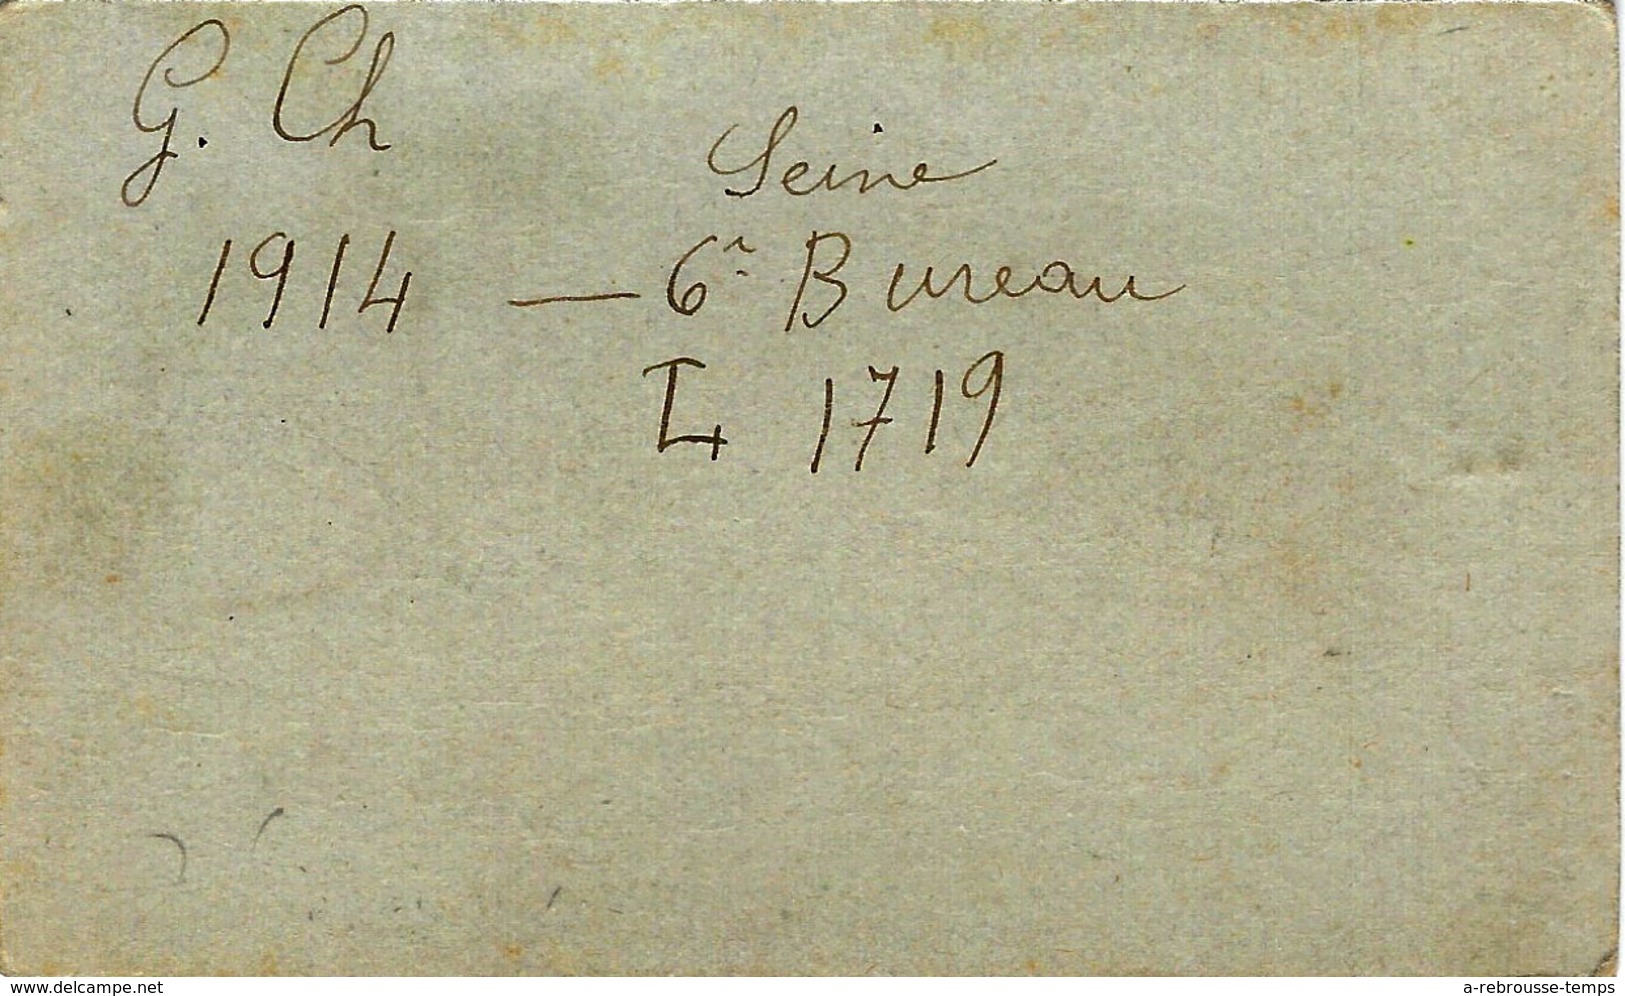 G. Ch
Seine
1914 — 6e Bureau
L 1719
www.delcampe.net
a-rebrousse-temps